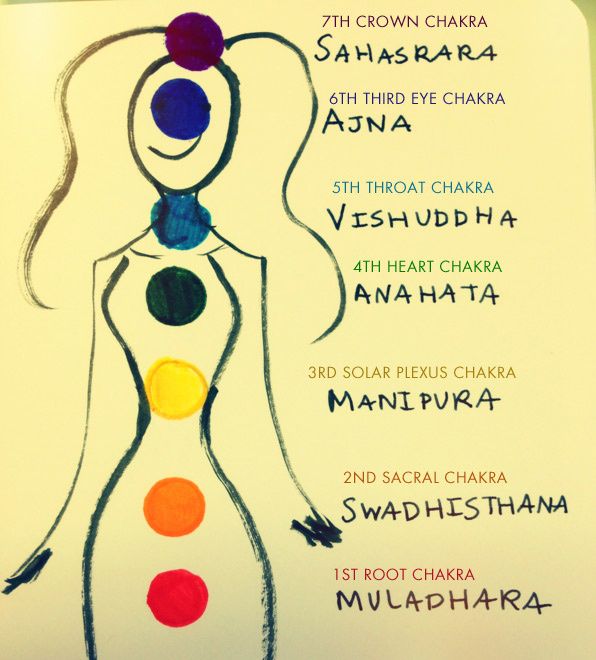 7TH CROWN CHAKRA
SAHASRARA
6TH THIRD EYE CHAKRA
AJNA
5TH THROAT CHAKRA
VISHUDDHA
4TH HEART CHAKRA
ANAHATA
3RD SOLAR PLEXUS CHAKRA
MANIPURA
2ND SACRAL CHAKRA
SWADHISTHANA
1ST ROOT CHAKRA
MULADHARA